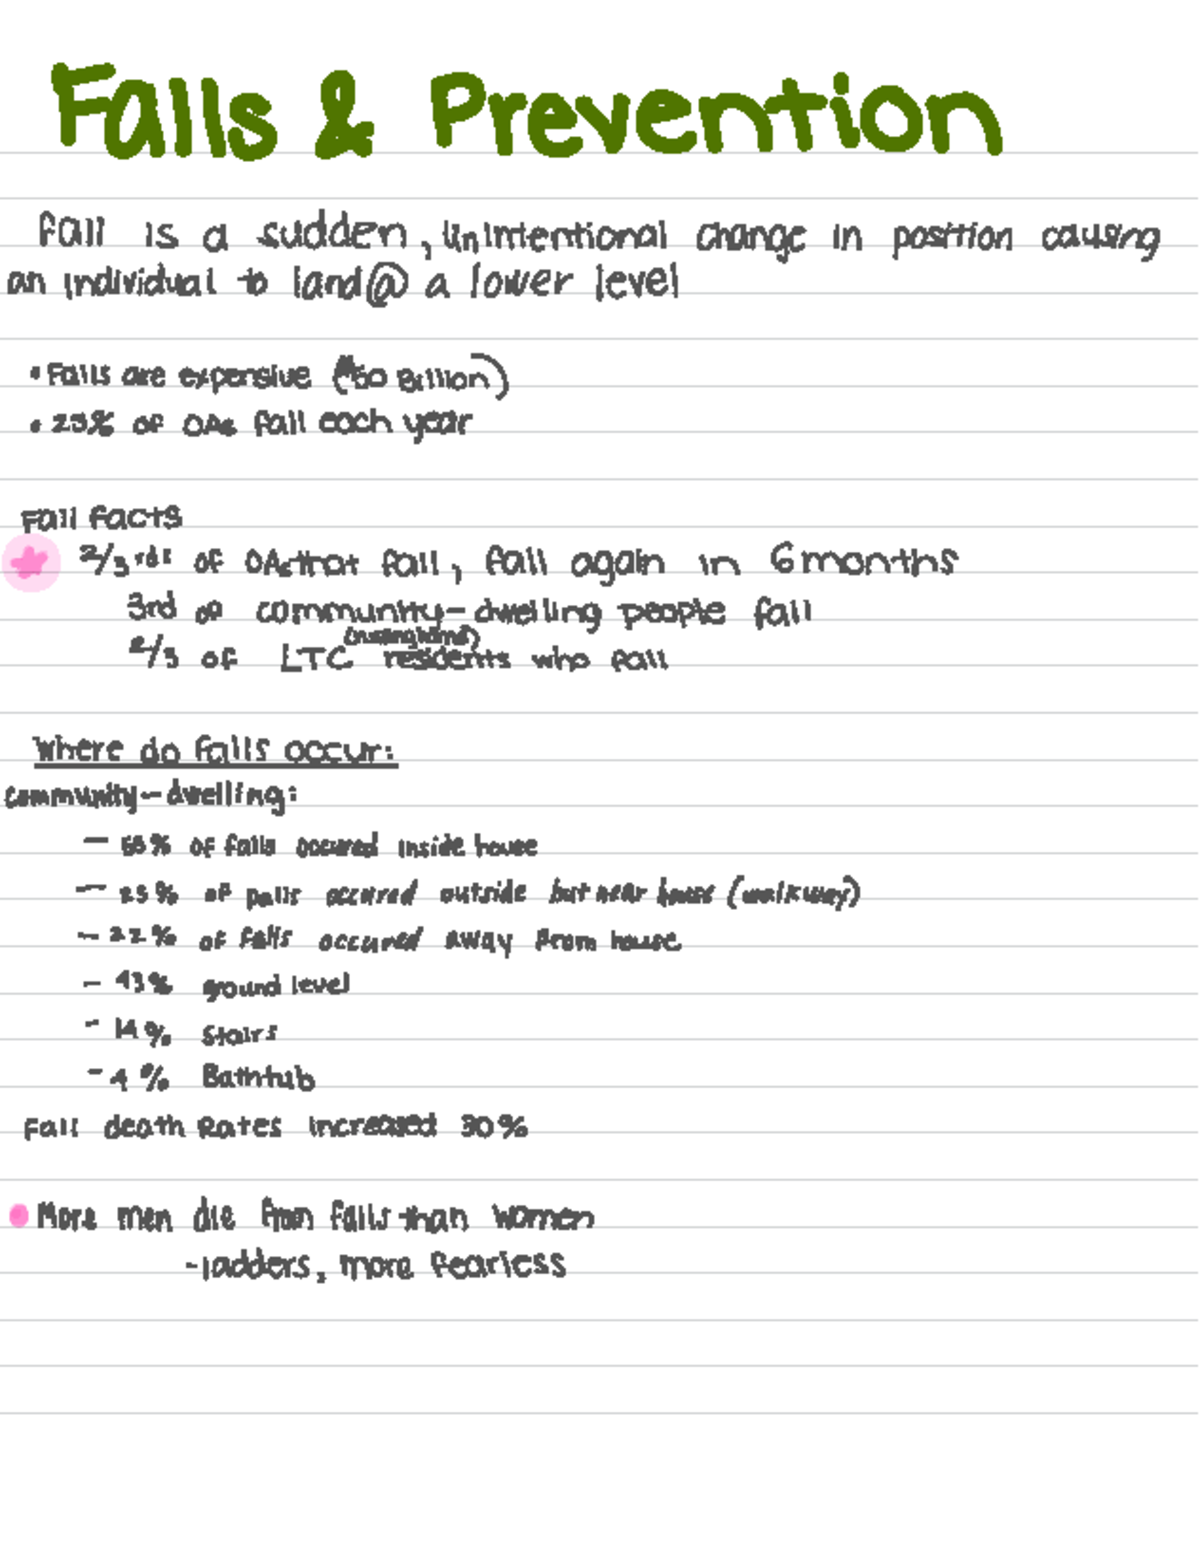 Falls & Prevention
fall is a sudden, unintentional change in position causing
an individual to land@ a lower level
• Falls are expensive ($50 Billion)
• 25% of OAs fall each year
Fall facts
2/3rds of OAs that fall, fall again in 6 months
3rd of community-dwelling people fall
(nursing home)
2/3 of LTC residents who fall
Where do falls occur:
community-dwelling:
- 55% of falls occured inside house
- 23% of falls occured outside but near house (walkway)
- 22% of falls occured away from house
- 43% ground level
- 14% Stairs
- 4% Bathtub
Fall death Rates increased 30%
• More men die from falls than women
- ladders, more fearless